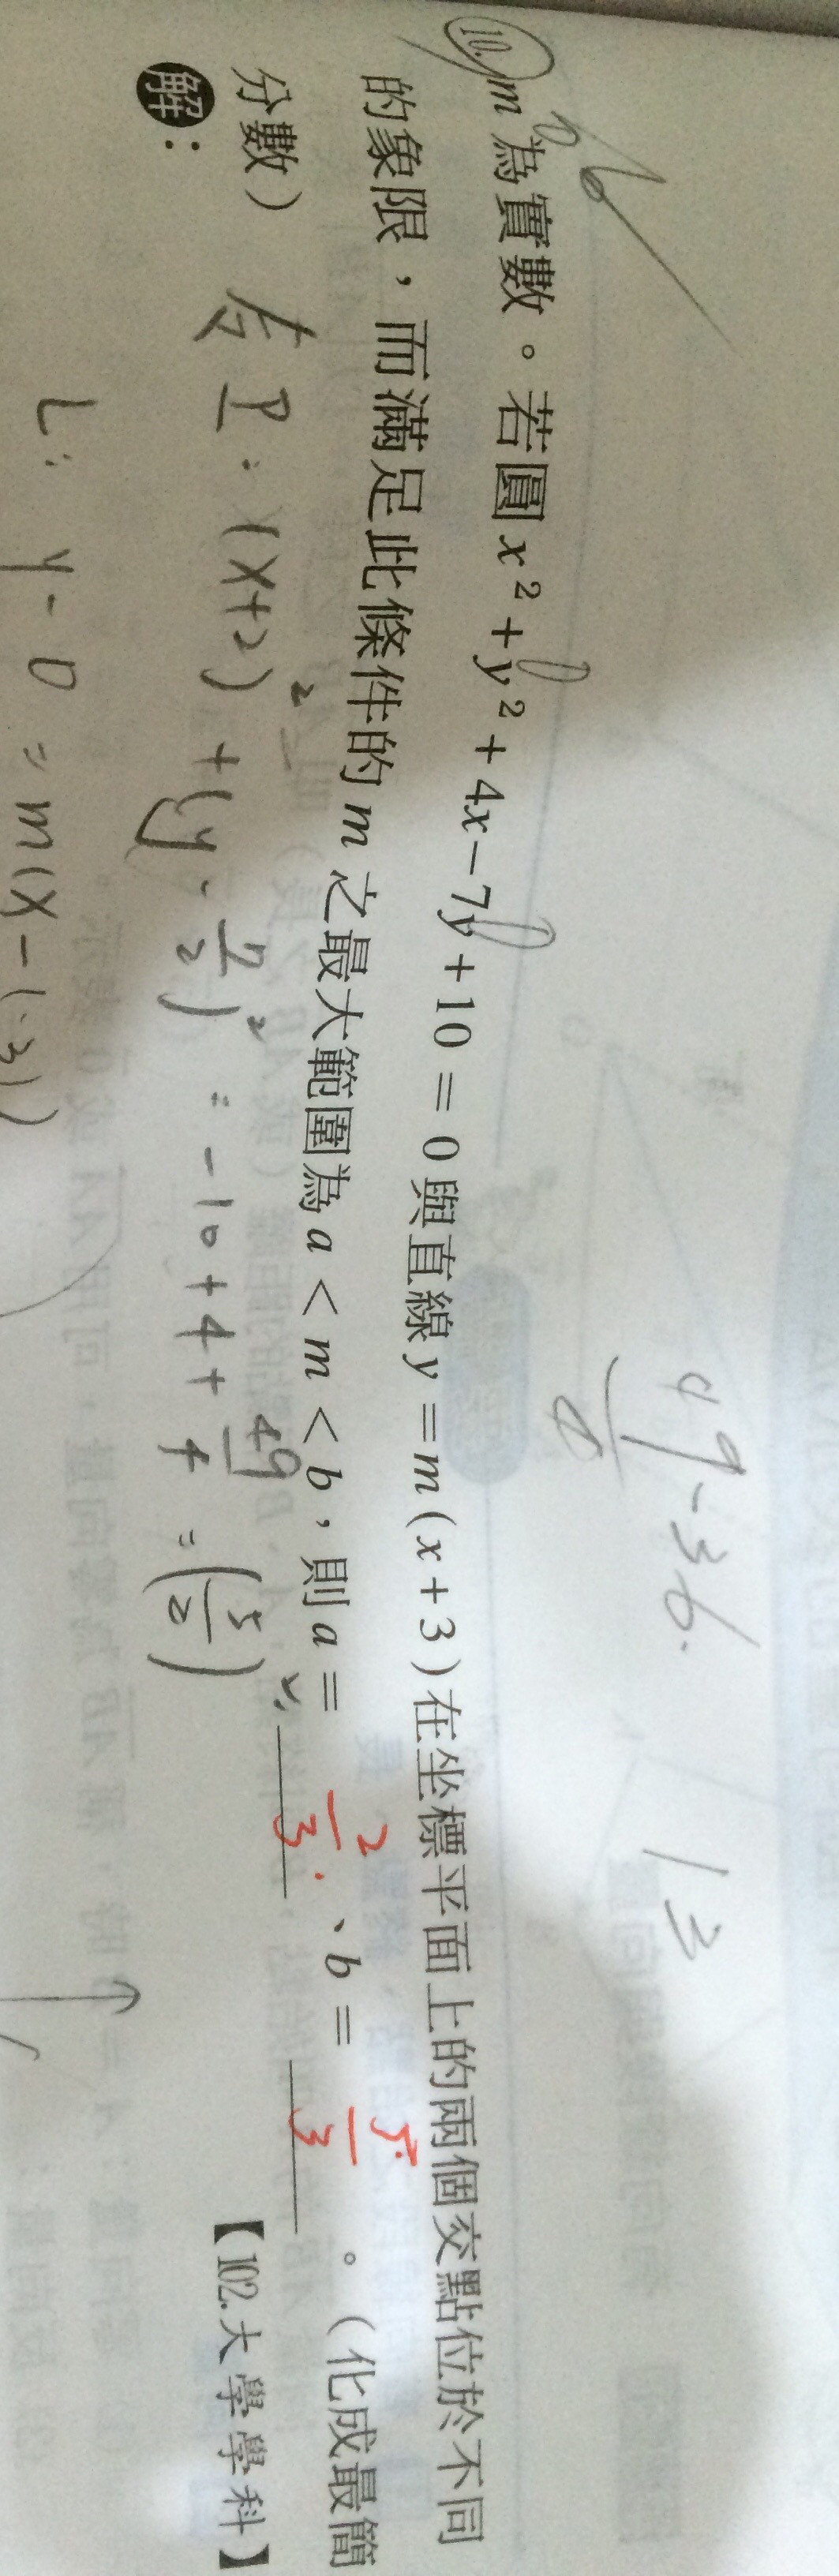 49-36 13
4
10. m 為實數。若圓 x² + y² + 4x − 7y + 10 = 0 與直線 y = m ( x + 3 ) 在坐標平面上的兩個交點位於不同
的象限,而滿足此條件的 m 之最大範圍為 a < m < b,則 a = 2/3、b = 5/3。(化成最簡
分數) 【102.大學學科】
解: : (x+2)² + (y - 7/2)² = -10+4+ 49/4 = (5/2)²
L: y - 0 = m(x-(-3))